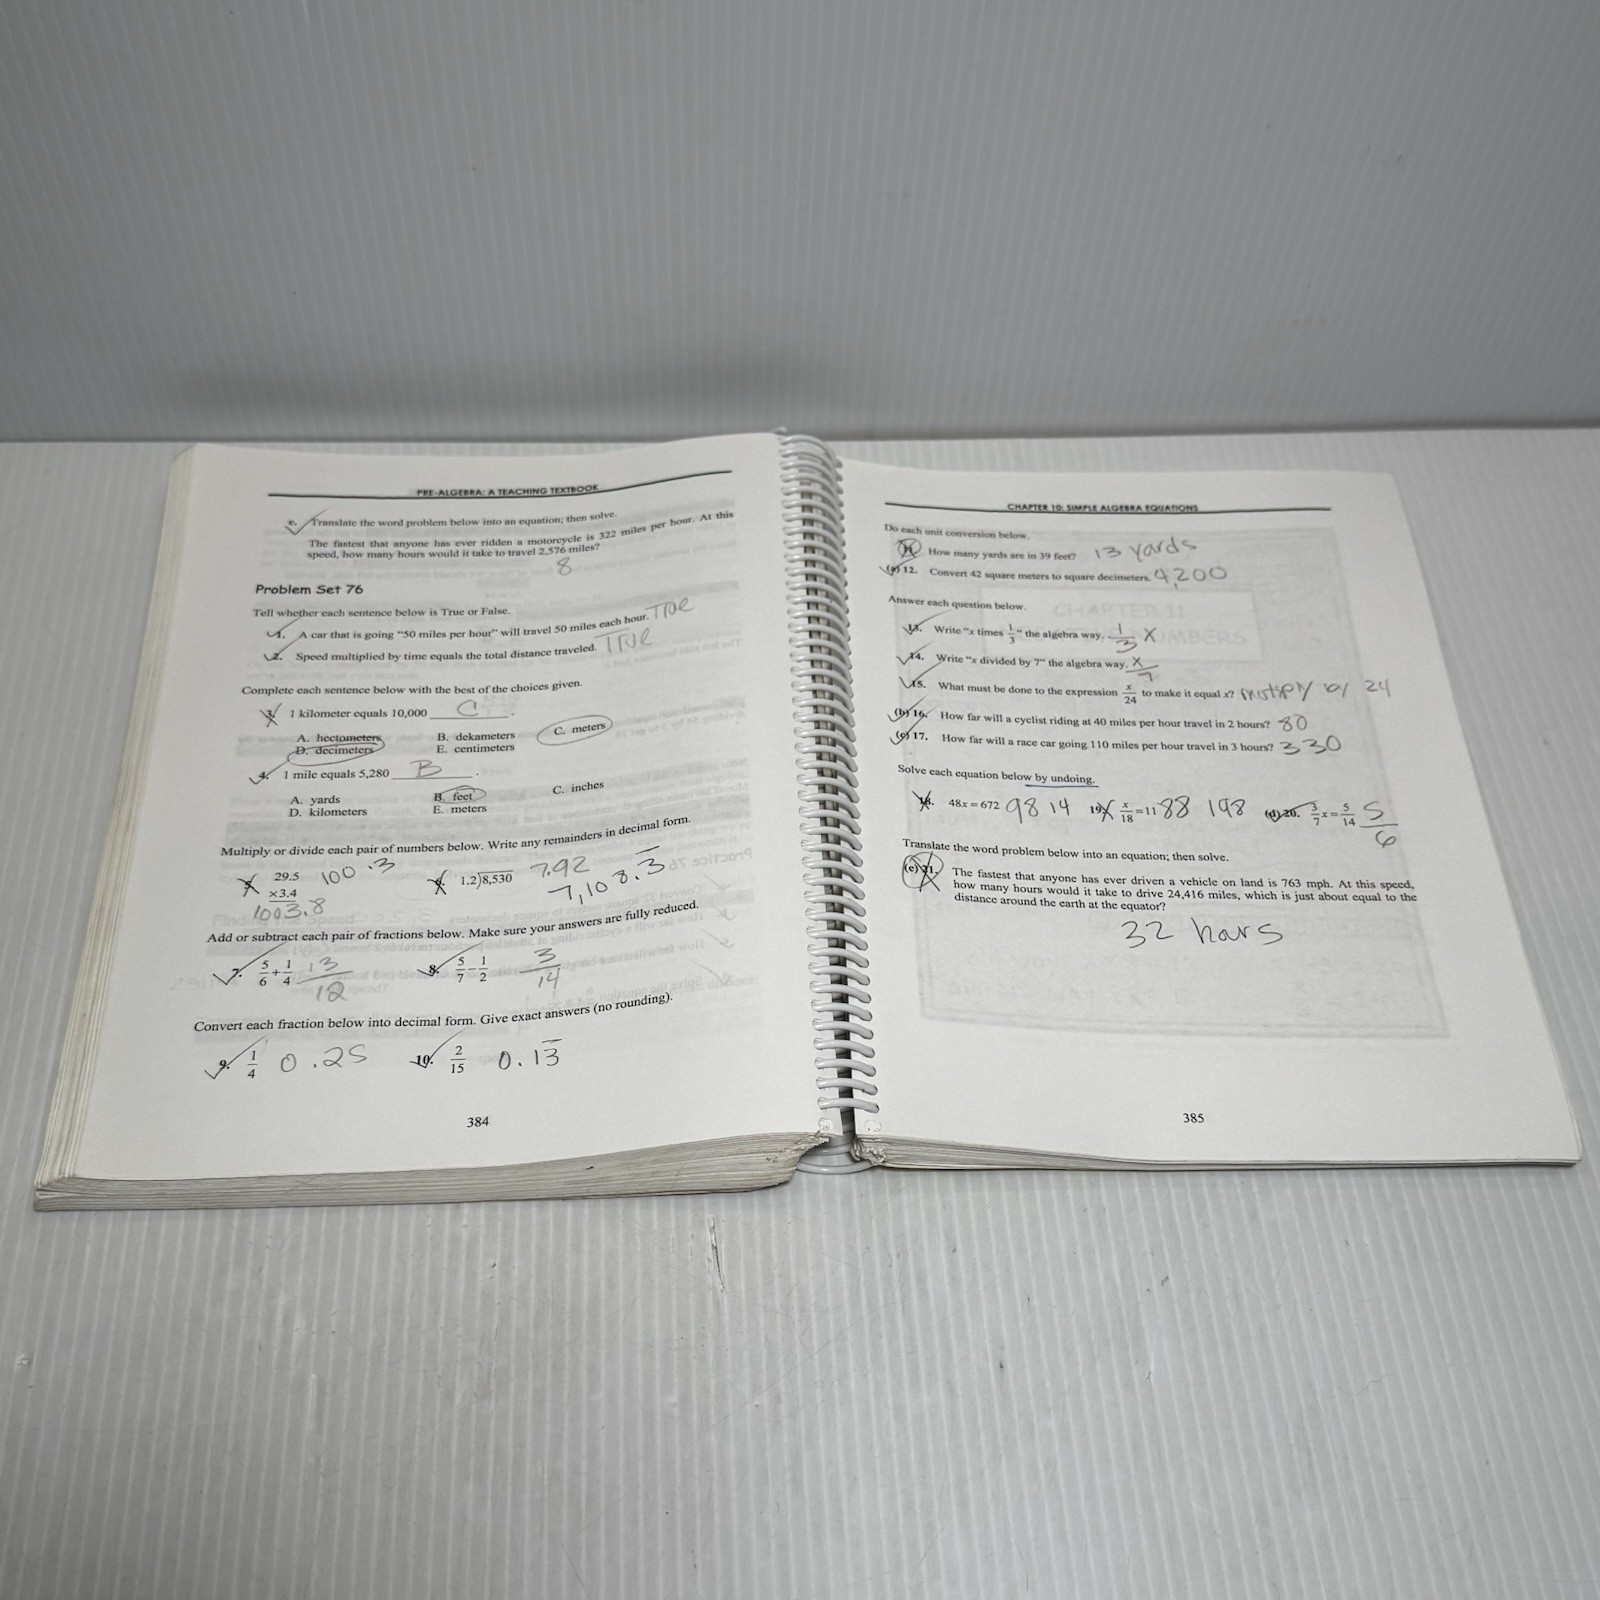 PRE-ALGEBRA: A TEACHING TEXTBOOK
e. Translate the word problem below into an equation; then solve.
The fastest that anyone has ever ridden a motorcycle is 322 miles per hour. At this
speed, how many hours would it take to travel 2,576 miles?
8
Problem Set 76
Tell whether each sentence below is True or False.
1. A car that is going "50 miles per hour" will travel 50 miles each hour. True
2. Speed multiplied by time equals the total distance traveled. True
Complete each sentence below with the best of the choices given.
3. 1 kilometer equals 10,000 C .
A. hectometers B. dekameters C. meters
D. decimeters E. centimeters
4. 1 mile equals 5,280 B .
A. yards B. feet C. inches
D. kilometers E. meters
Multiply or divide each pair of numbers below. Write any remainders in decimal form.
5. 29.5 100.3 6. 1.2)8,530 7.92
×3.4 7,108.3̅
1003.8
Add or subtract each pair of fractions below. Make sure your answers are fully reduced.
7. 5/6 + 1/4 13/12 8. 5/7 − 1/2 3/14
Convert each fraction below into decimal form. Give exact answers (no rounding).
9. 1/4 0.25 10. 2/15 0.13̅
384
CHAPTER 10: SIMPLE ALGEBRA EQUATIONS
Do each unit conversion below.
11. How many yards are in 39 feet? 13 yards
(a) 12. Convert 42 square meters to square decimeters. 4,200
Answer each question below.
13. Write "x times 1/3" the algebra way. 1/3 x
14. Write "x divided by 7" the algebra way. x/7
15. What must be done to the expression x/24 to make it equal x? multiply by 24
(b) 16. How far will a cyclist riding at 40 miles per hour travel in 2 hours? 80
(c) 17. How far will a race car going 110 miles per hour travel in 3 hours? 330
Solve each equation below by undoing.
18. 48x = 672 98 14 19. x/18 = 11 88 198 (d) 20. 3/7 x = 5/14 5/6
Translate the word problem below into an equation; then solve.
(e) 21. The fastest that anyone has ever driven a vehicle on land is 763 mph. At this speed,
how many hours would it take to drive 24,416 miles, which is just about equal to the
distance around the earth at the equator?
32 hours
385